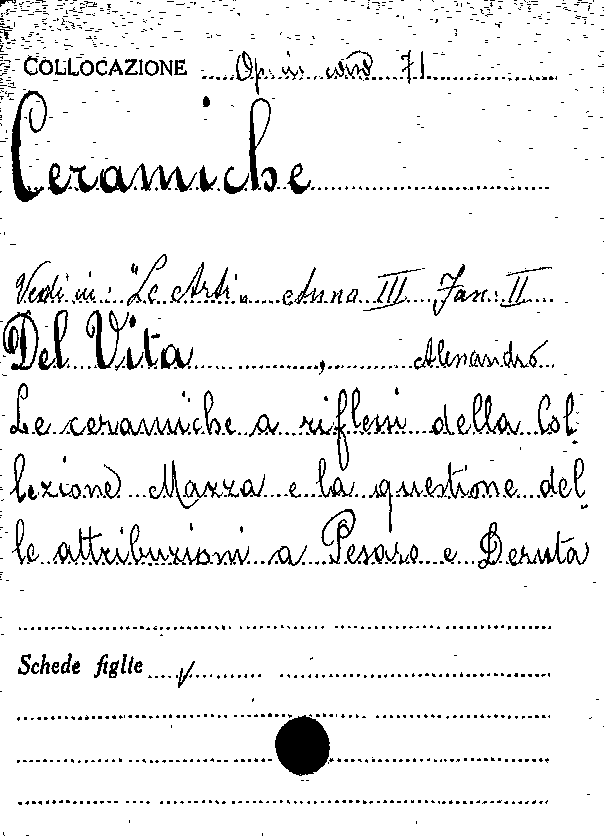 COLLOCAZIONE Op. in 71
Ceramiche
Vedi in: "Le Arti" Anno III Fasc. II
Del Vita, Alessandro
Le ceramiche a riflessi della Col
lezione Mazza e la questione del
le attribuzioni a Pesaro e Deruta
Schede figlie